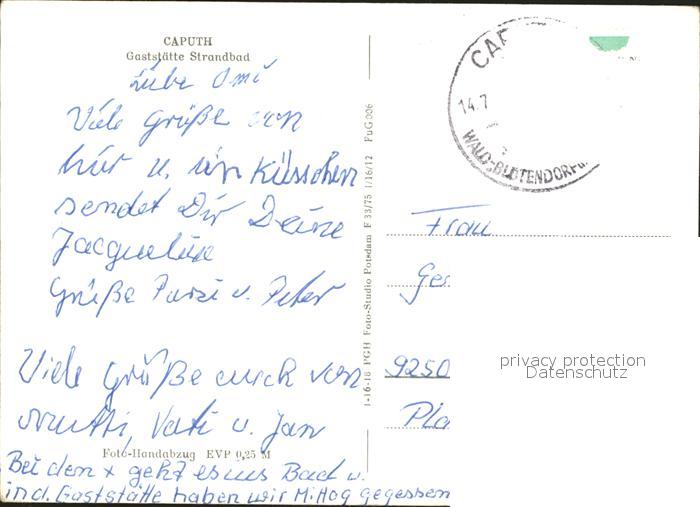 CAPUTH
Gaststätte Strandbad
Liebe Omi
Viele Grüße von
hier u. ein Küsschen
sendet Dir Deine
Jacqueline
Grüße u. Peter
Viele Grüße auch von
Mutti, Vati u. Jan
Foto-Handabzug EVP 0,25 M
Bei dem x geht es ins Bad u.
in d. Gaststätte haben wir Mittag gegessen
1-16-18 PGH Foto-Studio Potsdam F 33/75 1/16/12 FuG 006
CAP
14.7
WALD-BLÜTENDORF
Frau
Ge
9250
Pla
privacy protection
Datenschutz